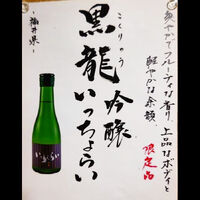 爽やかでフルーティな香り、上品なボディと
軽やかな余韻、
限定品
こくりゅう
黒龍 吟醸
いっちょらい
~福井県~
いっちょらい